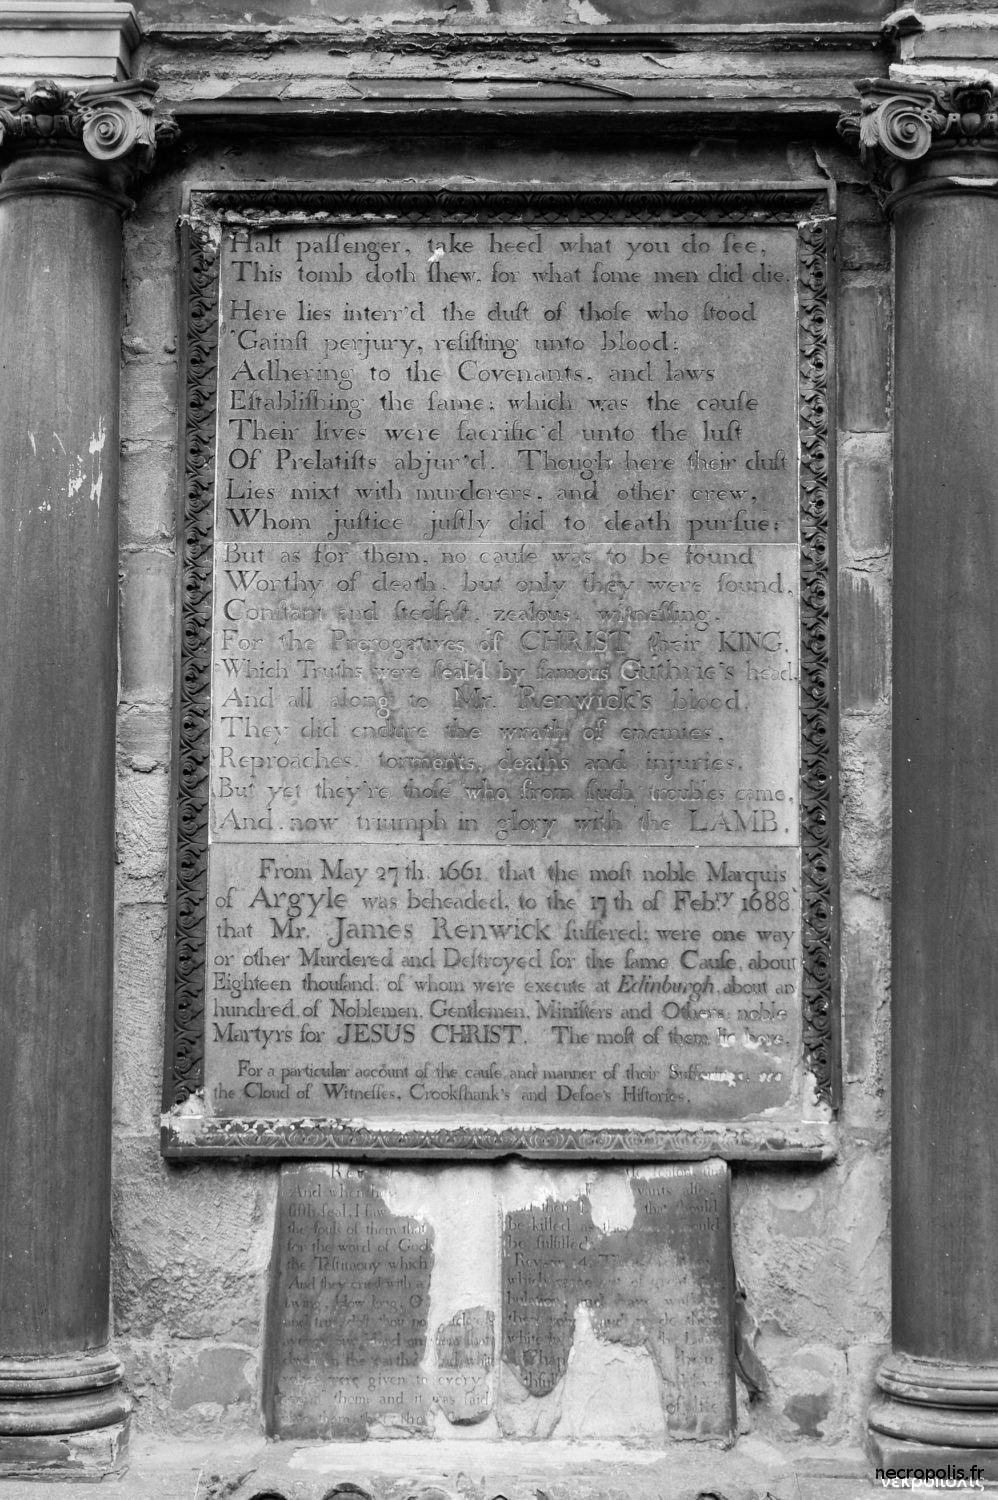 Halt paſſenger, take heed what you do ſee,
This tomb doth ſhew, for what ſome men did die.
Here lies interr'd the duſt of thoſe who ſtood
'Gainſt perjury, reſiſting unto blood;
Adhering to the Covenants, and laws
Eſtabliſhing the ſame; which was the cauſe
Their lives were ſacrific'd unto the luſt
Of Prelatiſts abjur'd. Though here their duſt
Lies mixt with murderers, and other crew,
Whom juſtice juſtly did to death purſue:
But as for them, no cauſe was to be found
Worthy of death, but only they were found,
Conſtant and ſtedfaſt, zealous, witneſſing,
For the Prerogatives of CHRIST their KING,
Which Truths were ſeal'd by famous Guthrie's head,
And all along to Mr. Renwick's blood.
They did endure the wrath of enemies,
Reproaches, torments, deaths and injuries.
But yet they're thoſe who from ſuch troubles came,
And now triumph in glory with the LAMB.
From May 27th, 1661, that the moſt noble Marquis
of Argyle was beheaded, to the 17th of Feb.ry 1688
that Mr. James Renwick ſuffered; were one way
or other Murdered and Deſtroyed for the ſame Cauſe, about
Eighteen thouſand, of whom were execute at Edinburgh, about an
hundred, of Noblemen, Gentlemen, Miniſters and Others; noble
Martyrs for JESUS CHRIST. The moſt of them lie here.
For a particular account of the cauſe and manner of their Sufferings, see
the Cloud of Witneſſes, Crookſhank's and Defoe's Hiſtories.
Rev
And when he
fifth ſeal, I ſaw
the ſouls of them that
for the word of God
the Teſtimony which
And they cried with a
ſaying, How long, O
the earth
robes were given to every
them; and it was ſaid
ſhould
be killed as
be fulfilled
Rev.
which came out of great
the Lamb
Chap
of life
necropolis.fr
νεκρόπολις